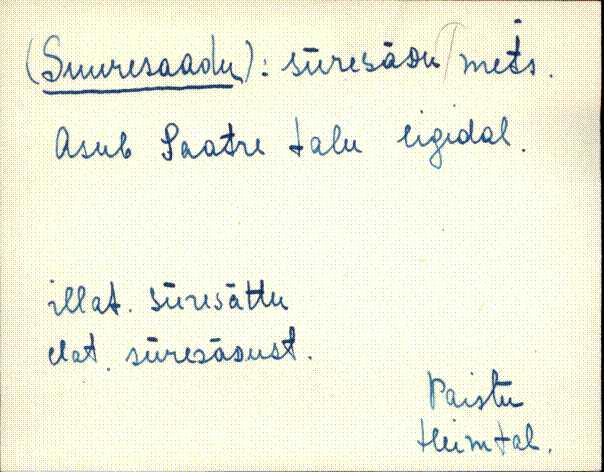 (Suuresaadu): sūresāᴅu mets.
Asub Saatre talu ligidal.
illat. sūresāttu
elat. sūresāᴅust.
Paistu
Heimtal.